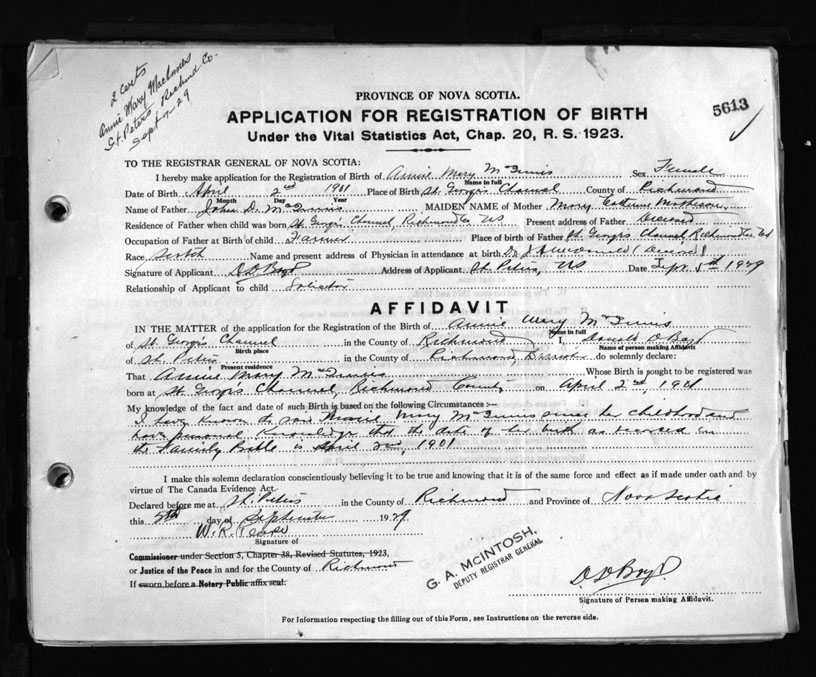 2 certs
Annie Mary MacInnes
St. Peters Richmond Co.
Sept 7-29
PROVINCE OF NOVA SCOTIA.
5613
APPLICATION FOR REGISTRATION OF BIRTH
Under the Vital Statistics Act, Chap. 20, R. S. 1923.
TO THE REGISTRAR GENERAL OF NOVA SCOTIA:
I hereby make application for the Registration of Birth of Annie Mary McInnis Sex Female
Name in full
Date of Birth April 2nd 1901 Place of Birth St. George's Channel County of Richmond
Month Day Year
Name of Father John D. McInnis MAIDEN NAME of Mother Mary Catherine
Residence of Father when child was born St. George's Channel, Richmond Co NS Present address of Father Deceased
Occupation of Father at Birth of child Farmer Place of Birth of Father St. George's Channel Richmond Co NS
Race Scotch Name and present address of Physician in attendance at birth Dr. (Deceased)
Signature of Applicant D D Boyd Address of Applicant St. Peters, NS Date Sept. 5th 1929
Relationship of Applicant to child Solicitor
AFFIDAVIT
IN THE MATTER of the application for the Registration of the Birth of Annie Mary McInnis
Name in full
of St. George's Channel in the County of Richmond I, Boyd
Birth place Name of person making Affidavit
of St. Peters in the County of Richmond, do solemnly declare:
Present residence
That Annie Mary McInnis Whose Birth is sought to be registered was
born at St. George's Channel, Richmond County on April 2nd 1901
My knowledge of the fact and date of such Birth is based on the following Circumstances :—
I have known the said Annie Mary McInnis since her childhood and
have personal knowledge that the date of her birth as recorded in
the Family Bible is April 2nd, 1901
I make this solemn declaration conscientiously believing it to be true and knowing that it is of the same force and effect as if made under oath and by
virtue of The Canada Evidence Act.
Declared before me at St. Peters in the County of Richmond and Province of Nova Scotia
this 5th day of September 1929
W. R.
Signature of
Commissioner under Section 5, Chapter 38, Revised Statutes, 1923,
or Justice of the Peace in and for the County of Richmond
If sworn before a Notary Public affix seal.
G. A. McINTOSH,
DEPUTY REGISTRAR GENERAL
D. D Boyd.
Signature of Person making Affidavit.
For Information respecting the filling out of this Form, see Instructions on the reverse side.